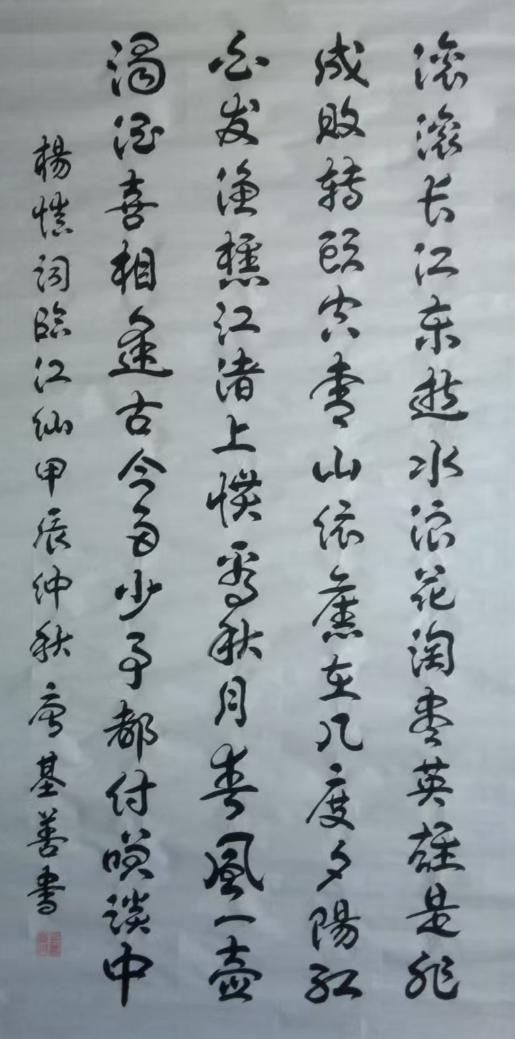 滚滚长江东逝水浪花淘尽英雄是非
成败转头空青山依旧在几度夕阳红
白发渔樵江渚上惯看秋月春风一壶
浊酒喜相逢古今多少事都付笑谈中
楊慎词临江仙甲辰仲秋基善书